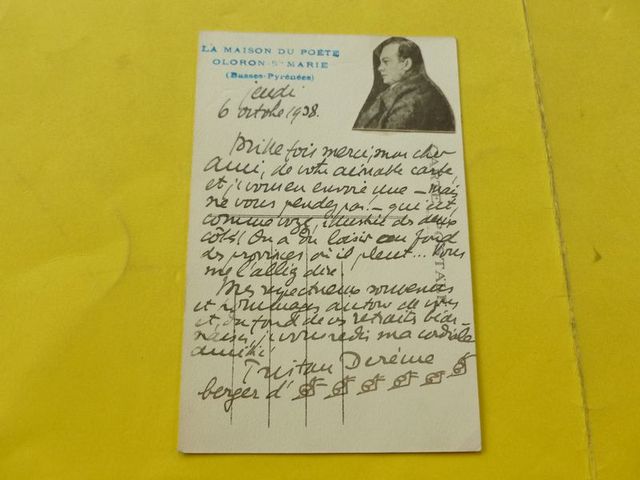 LA MAISON DU POÈTE
OLORON-Ste MARIE
(Basses-Pyrénées)
jeudi
6 octobre 1938.
Mille fois merci, mon cher
ami, de votre aimable carte,
et j'vous en envoie une – mais
ne vous pendez pas! – qui est,
comme voyez, illustrée des deux
côtés! On a du loisir au fond
des provinces où il pleut... Vous
me l'allez dire.
Mes respectueux souvenirs
et hommages autour de vous
et, du fond de vos retraits
j'vous redis ma cordiale
amitié.
Tristan Derème
berger d'
CARTE POSTALE